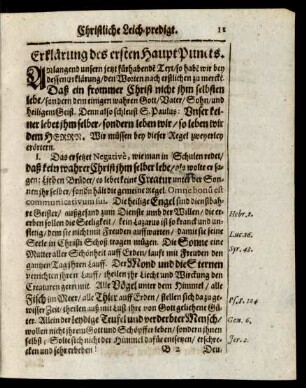 Christliche Leich-predigt. 11
Erklärung des ersten Haupt Puncts.
Anlangend unsern jetzt fürhabendẽ Text/ so habẽ wir bey
dessem erklärung/ den Worten nach erstlichen zu merckẽ
Daß ein frommer Christ nicht ihm selbsten
lebt/ sondern dem einigen wahren Gott/ Vater/ Sohn/ und
heiligem Geist. Denn also schleust S. Paulus: Unser kei-
ner lebet ihm selber/ sondern leben wir/ so leben wir
dem HERRN. Wir müssen bey dieser Regel zweyerley
erörtern.
I. Das er setzet Negativè, wie man in Schulen redet/
daß kein wahrer Christ ihm selber lebe/ als wolte er sa-
gen: Lieben Brüder/ es lebet keine Creatur unter der Son-
nen ihr selber/ sondern hält die gemeine Regel. Omne bonũ est
communicativum sui. Die heilige Engel sind dienstbah-
re Geister/ außgesand zum Dienste umb der willen/ die er-
ben sollen die Seeligkeit/ kein Lazarus ist so kranck und un-
flätig/ dem sie nicht mit Freuden auffwarten/ damit sie seine
Seele in Christi Schoß tragen mügen. Die Sonne eine
Mutter aller Schönheit auff Erden/ laufft mit Freuden den
gantzen Tag ihren Lauff. Der Mond und die Sternen
verrichten ihren Lauff/ theilen ihr Liecht und Wirckung den
Creaturen gern mit. Alle Vögel unter dem Himmel/ alle
Fisch im Meer/ alle Thier auff Erden/ stellen sich da zu ge-
wisser Zeit/ theilen auß mit Lust ihre von Gott geliehene Gü-
ter. Allein der leydige Teufel und verderbter Mensch/
wollen nicht ihrem Gott und Schöpffer leben/ sondern ihnen
selbst/ Solte sich nicht der Himmel dafür entsetzen/ erschre-
cken und sehr erbeben!
B 2 Deu-
Hebr. 1.
Luc. 16.
Syr. 43.
Ps. 104
Gen. 6.
Jer. 2.